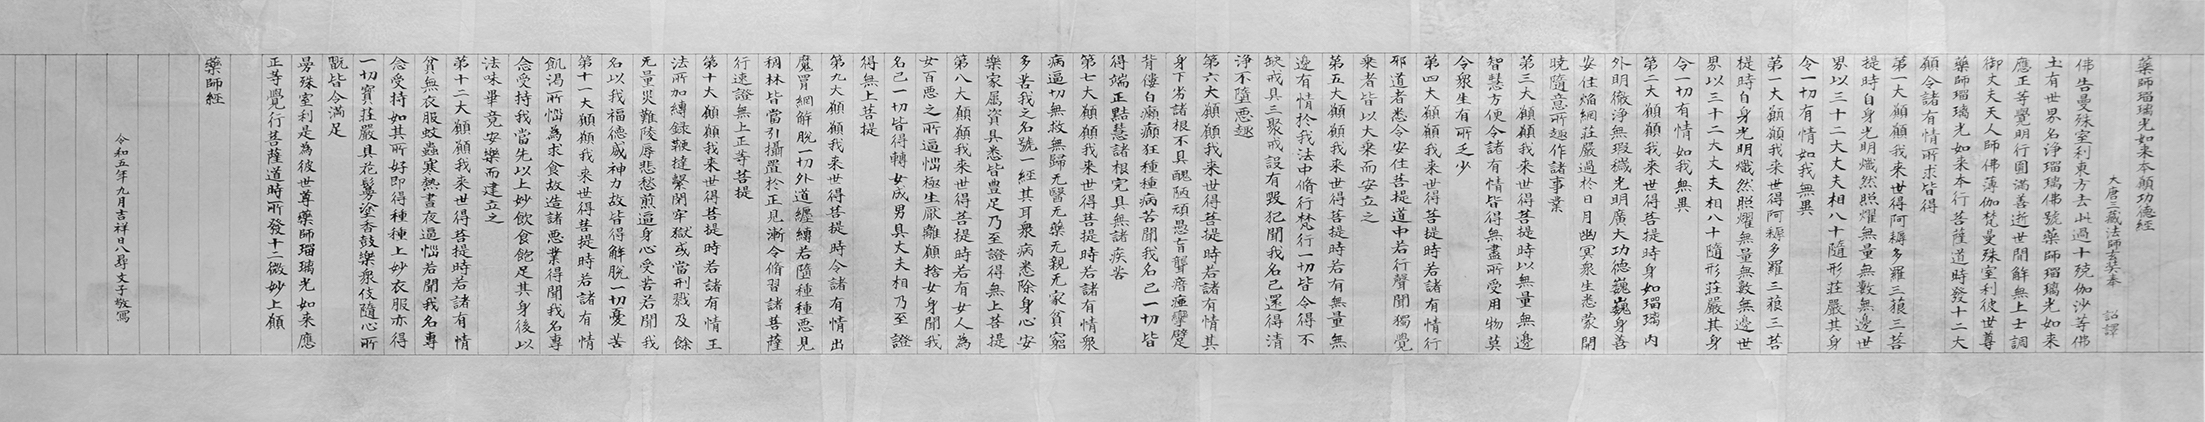 藥師瑠璃光如来本願功徳經
大唐三藏法師玄奘奉 詔譯
佛告曼殊室利東方去此過十殑伽沙等佛
土有世界名淨瑠璃佛號藥師瑠璃光如来
應正等覺明行圓滿善逝世間解無上士調
御丈夫天人師佛薄伽梵曼殊室利彼世尊
藥師瑠璃光如来本行菩薩道時發十二大
願令諸有情所求皆得
第一大願願我来世得阿耨多羅三藐三菩
提時自身光明熾然照耀無量無數無邊世
界以三十二大丈夫相八十隨形莊嚴其身
令一切有情如我無異
第一大願願我来世得阿耨多羅三藐三菩
提時自身光明熾然照耀無量無數無邊世
界以三十二大丈夫相八十隨形莊嚴其身
令一切有情如我無異
第二大願願我来世得菩提時身如瑠璃内
外明徹淨無瑕穢光明廣大功德巍巍身善
安住焔網莊嚴過於日月幽冥衆生悉蒙開
曉隨意所趣作諸事業
第三大願願我来世得菩提時以無量無邊
智慧方便令諸有情皆得無盡所受用物莫
令衆生有所乏少
第四大願願我来世得菩提時若諸有情行
邪道者悉令安住菩提道中若行聲聞獨覺
乗者皆以大乗而安立之
第五大願願我来世得菩提時有無量無
邊有情於我法中脩行梵行一切皆令得不
缺戒具三聚戒設有毀犯聞我名已還得清
淨不墮惡趣
第六大願願我来世得菩提時若諸有情其
身下劣諸根不具醜陋頑愚盲聾瘖瘂攣躄
背僂白癩癲狂種種病苦聞我名已一切皆
得端正黠慧諸根完具無諸疾苦
第七大願願我来世得菩提時若諸有情衆
病逼切無救無歸无醫无藥无親无家貧窮
多苦我之名號一經其耳衆病悉除身心安
樂家屬資具悉皆豊足乃至證得無上菩提
第八大願願我来世得菩提時若有女人為
女百惡之所逼惱極生厭離願捨女身聞我
名已一切皆得轉女成男具丈夫相乃至證
得無上菩提
第九大願願我来世得菩提時令諸有情出
魔罥網解脱一切外道纏縛若墮種種惡見
稠林皆當引攝置於正見漸令脩習諸菩薩
行速證無上正等菩提
第十大願願我来世得菩提時若諸有情王
法所加縛録鞭撻繫閉牢獄或當刑戮及餘
无量災難陵辱悲愁煎逼身心受苦若聞我
名以我福德威神力故皆得解脱一切憂苦
第十一大願願我来世得菩提時若諸有情
飢渇所惱為求食故造諸惡業得聞我名專
念受持我當先以上妙飲食飽足其身後以
法味畢竟安樂而建立之
第十二大願願我来世得菩提時若諸有情
貧無衣服蚊蝱寒熱晝夜逼惱若聞我名專
念受持如其所好即得種種上妙衣服亦得
一切寳莊嚴具花鬘塗香鼓樂衆伎隨心所
翫皆令滿足
曼殊室利是為彼世尊藥師瑠璃光如来應
正等覺行菩薩道時所發十二微妙上願
藥師經
令和五年九月吉祥日八尋文子敬寫